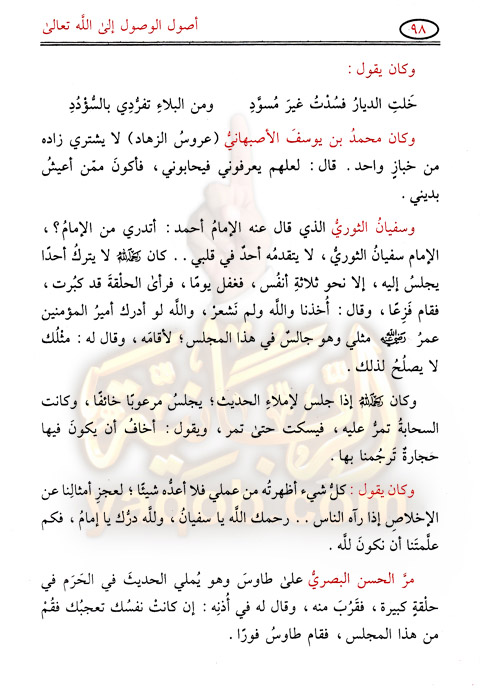 ٩٨
أصول الوصول إلىٰ اللَّه تعالىٰ
وكان يقول :
خَلتِ الديارُ فسُدْتُ غيرَ مسوَّدِ ومن البلاءِ تفرُّدِي بالسُّؤْدُدِ
وكان محمدُ بن يوسفَ الأصبهانيُّ (عروسُ الزهاد) لا يشتري زاده
من خبازٍ واحد . قال : لعلهم يعرفوني فيحابوني ، فأكونَ ممّن أعيشُ
بديني .
وسفيانُ الثوريُّ الذي قال عنه الإمامُ أحمد : أتدري من الإمامُ؟ ،
الإمام سفيانُ الثوريُّ ، لا يتقدمُه أحدٌ في قلبي . . كان رَحِمَهُ اللَّهُ لا يتركُ أحدًا
يجلسُ إليه ، إلا نحو ثلاثةِ أنفُس ، فغفل يومًا ، فرأىٰ الحلْقةَ قد كبُرت ،
فقام فَزِعًا ، وقال : أُخذنا واللَّه ولم نَشعرْ ، واللَّه لو أدرك أميرُ المؤمنين
عمرُ رضي الله عنه مثلي وهو جالسٌ في هذا المجلس ؛ لأقامَه ، وقال له : مثْلُك
لا يصلُحُ لذلك .
وكان رَحِمَهُ اللَّهُ إذا جلس لإملاءِ الحديث ؛ يجلسُ مرعوبًا خائفًا ، وكانت
السحابةُ تمرُّ عليه ، فيسكت حتىٰ تمر ، ويقول : أخافُ أن يكونَ فيها
حجارةٌ تَرجُمنا بها .
وكان يقول : كلُّ شيء أظهرتُه من عملي فلا أعدُّه شيئًا ؛ لعجزِ أمثالِنا عن
الإخلاصِ إذا رآه الناس . . رحمك اللَّه يا سفيانُ ، وللَّه درُّك يا إمامُ ، فكم
علَّمتَنا أن نكونَ للَّه .
مرَّ الحسن البصريُّ علىٰ طاوسَ وهو يُملي الحديثَ في الحَرَم في
حلْقةٍ كبيرة ، فقَرُبَ منه ، وقال له في أُذنِه : إن كانتْ نفسُك تعجبُك فقُمْ
من هذا المجلس ، فقام طاوسُ فورًا .